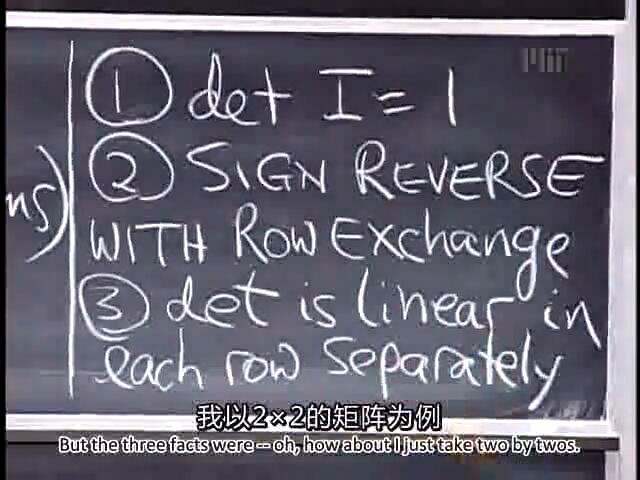 MIT
① det I = 1
② SIGN REVERSE
ns) WITH ROW EXchange
③ det is linear in
each row separately
我以2×2的矩阵为例
But the three facts were -- oh, how about I just take two by twos.